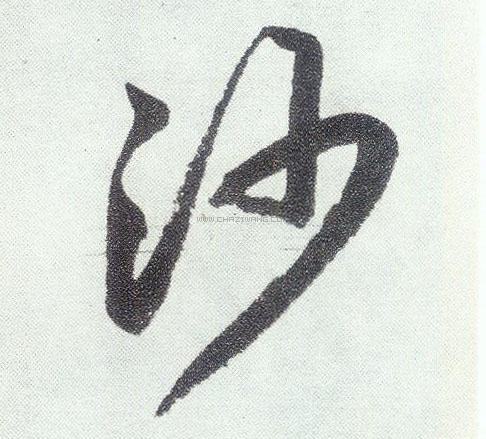 沙
WWW.CHAZIWANG.COM